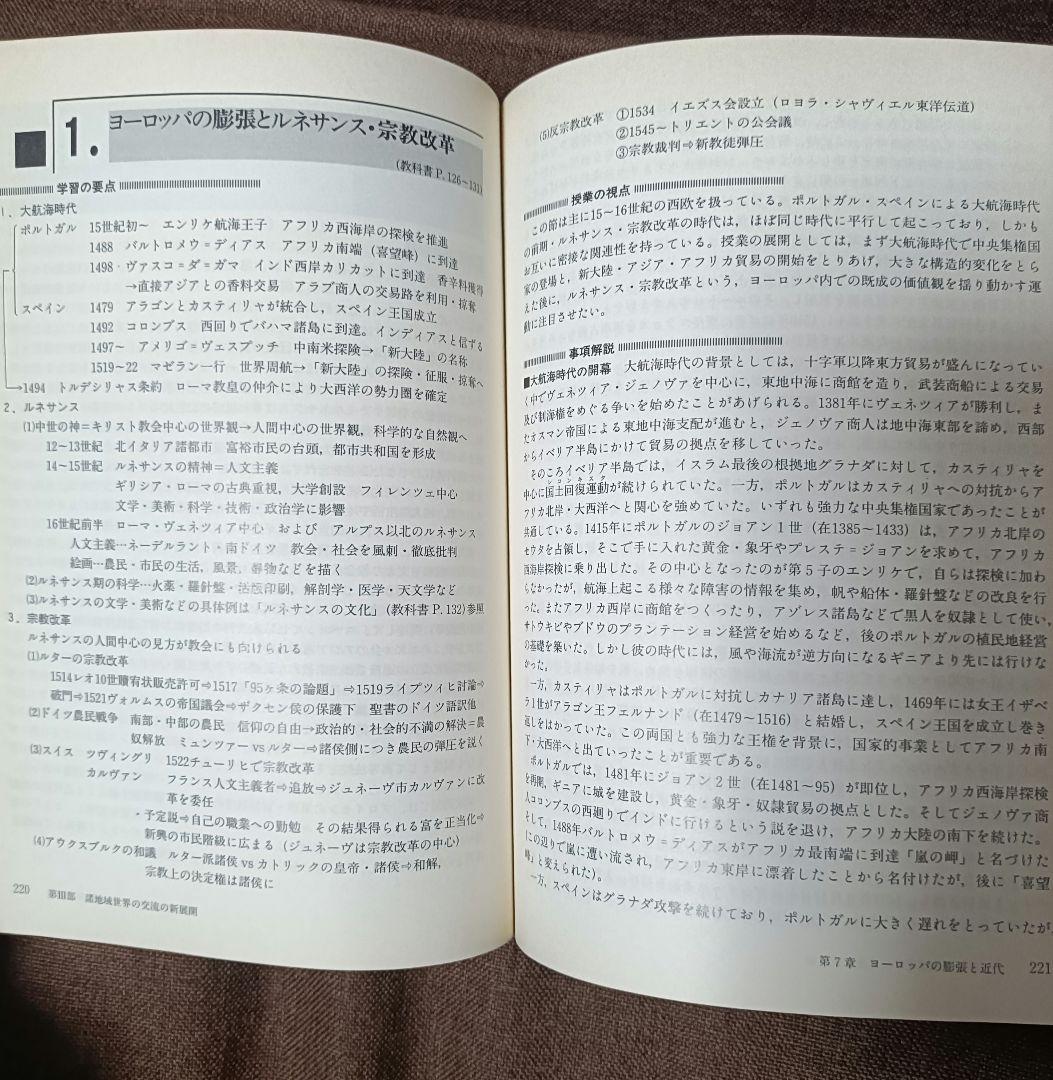 1. ヨーロッパの膨張とルネサンス・宗教改革
(教科書P.126~131)
学習の要点
1．大航海時代
ポルトガル 15世紀初～ エンリケ航海王子 アフリカ西海岸の探検を推進
1488 バルトロメウ＝ディアス アフリカ南端（喜望峰）に到達
1498 ヴァスコ＝ダ＝ガマ インド西岸カリカットに到達 香辛料獲得
→直接アジアとの香料交易 アラブ商人の交易路を利用・掠奪
スペイン 1479 アラゴンとカスティリャが統合し，スペイン王国成立
1492 コロンブス 西回りでバハマ諸島に到達。インディアスと信ずる
1497～ アメリゴ＝ヴェスプッチ 中南米探険→「新大陸」の名称
1519～22 マゼラン一行 世界周航→「新大陸」の探険・征服・掠奪へ
→1494 トルデシリャス条約 ローマ教皇の仲介により大西洋の勢力圏を確定
2．ルネサンス
(1)中世の神＝キリスト教会中心の世界観→人間中心の世界観，科学的な自然観へ
12～13世紀 北イタリア諸都市 富裕市民の台頭，都市共和国を形成
14～15世紀 ルネサンスの精神＝人文主義
ギリシア・ローマの古典重視，大学創設 フィレンツェ中心
文学・美術・科学・技術・政治学に影響
16世紀前半 ローマ・ヴェネツィア中心 および アルプス以北のルネサンス
人文主義…ネーデルラント・南ドイツ 教会・社会を風刺・徹底批判
絵画…農民・市民の生活，風景，静物などを描く
(2)ルネサンス期の科学…火薬・羅針盤・活版印刷，解剖学・医学・天文学など
(3)ルネサンスの文学・美術などの具体例は「ルネサンスの文化」(教科書P.132)参照
3．宗教改革
ルネサンスの人間中心の見方が教会にも向けられる
(1)ルターの宗教改革
1514レオ10世贖宥状販売許可⇒1517「95ヶ条の論題」⇒1519ライプツィヒ討論⇒
破門⇒1521ヴォルムスの帝国議会⇒ザクセン侯の保護下 聖書のドイツ語訳他
(2)ドイツ農民戦争 南部・中部の農民 信仰の自由→政治的・社会的不満の解決＝農
奴解放 ミュンツァー vs ルター⇒諸侯側につき農民の弾圧を説く
(3)スイス ツヴィングリ 1522チューリヒで宗教改革
カルヴァン フランス人文主義者⇒追放⇒ジュネーヴ市カルヴァンに改
革を委任
・予定説⇒自己の職業への勤勉 その結果得られる富を正当化⇒
新興の市民階級に広まる（ジュネーヴは宗教改革の中心）
(4)アウクスブルクの和議 ルター派諸侯 vs カトリックの皇帝・諸侯⇒和解，
宗教上の決定権は諸侯に
220 第III部 諸地域世界の交流の新展開
(5)反宗教改革 ①1534 イエズス会設立（ロヨラ・シャヴィエル東洋伝道）
②1545～トリエントの公会議
③宗教裁判⇒新教徒弾圧
授業の視点
この節は主に15～16世紀の西欧を扱っている。ポルトガル・スペインによる大航海時代
の前期・ルネサンス・宗教改革の時代は，ほぼ同じ時代に平行して起こっており，しかも
お互いに密接な関連性を持っている。授業の展開としては，まず大航海時代で中央集権国
家の登場と，新大陸・アジア・アフリカ貿易の開始をとりあげ，大きな構造的変化をとら
えた後に，ルネサンス・宗教改革という，ヨーロッパ内での既成の価値観を揺り動かす運
動に注目させたい。
事項解説
■大航海時代の開幕 大航海時代の背景としては，十字軍以降東方貿易が盛んになってい
く中でヴェネツィア・ジェノヴァを中心に，東地中海に商館を造り，武装商船による交易
及び制海権をめぐる争いを始めたことがあげられる。1381年にヴェネツィアが勝利し，ま
たオスマン帝国による東地中海支配が進むと，ジェノヴァ商人は地中海東部を諦め，西部
からイベリア半島にかけて貿易の拠点を移していった。
そのころイベリア半島では，イスラム最後の根拠地グラナダに対して，カスティリャを
中心に国土回復運動が続けられていた。一方，ポルトガルはカスティリャへの対抗からア
フリカ北岸・大西洋へと関心を強めていた。いずれも強力な中央集権国家であったことが
共通している。1415年にポルトガルのジョアン1世（在1385～1433）は，アフリカ北岸の
セウタを占領し，そこで手に入れた黄金・象牙やプレステ＝ジョアンを求めて，アフリカ
西海岸探検に乗り出した。その中心となったのが第5子のエンリケで，自らは探検に加わ
らなかったが，航海上起こる様々な障害の情報を集め，帆や船体・羅針盤などの改良を行
った。またアフリカ西岸に商館をつくったり，アゾレス諸島などで黒人を奴隷として使い，
サトウキビやブドウのプランテーション経営を始めるなど，後のポルトガルの植民地経営
の基礎を築いた。しかし彼の時代には，風や海流が逆方向になるギニアより先には行けな
かった。
一方，カスティリャはポルトガルに対抗しカナリア諸島に達し，1469年には女王イザベ
ラ1世がアラゴン王フェルナンド（在1479～1516）と結婚し，スペイン王国を成立し巻き
返しをはかっていた。この両国とも強力な王権を背景に，国家的事業としてアフリカ南
下・大西洋へと出ていったことが重要である。
ポルトガルでは，1481年にジョアン2世（在1481～95）が即位し，アフリカ西海岸探検
を再開，ギニアに城を建設し，黄金・象牙・奴隷貿易の拠点とした。そしてジェノヴァ商
人コロンブスの西廻りでインドに行けるという説を退け，アフリカ大陸の南下を続けた。
そして，1488年バルトロメウ＝ディアスがアフリカ最南端に到達「嵐の岬」と名づけた
（この辺りで嵐に遭い流され，アフリカ東岸に漂着したことから名付けたが，後に「喜望
峰」と変えられた）。
一方，スペインはグラナダ攻撃を続けており，ポルトガルに大きく遅れをとっていたが，
第7章 ヨーロッパの膨張と近代 221